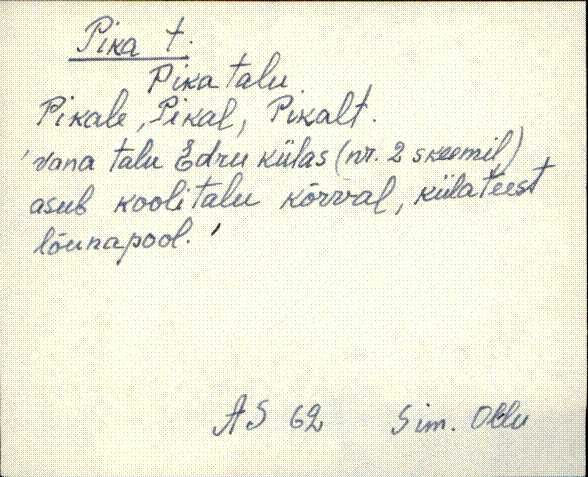 Pika t.
Pika talu
Pikale, Pikal, Pikalt.
'vana talu Edru külas (nr. 2 skeemil)
asub koolitalu kõrval, külateest
lõunapool.'
AS 62 Sim. Ollu